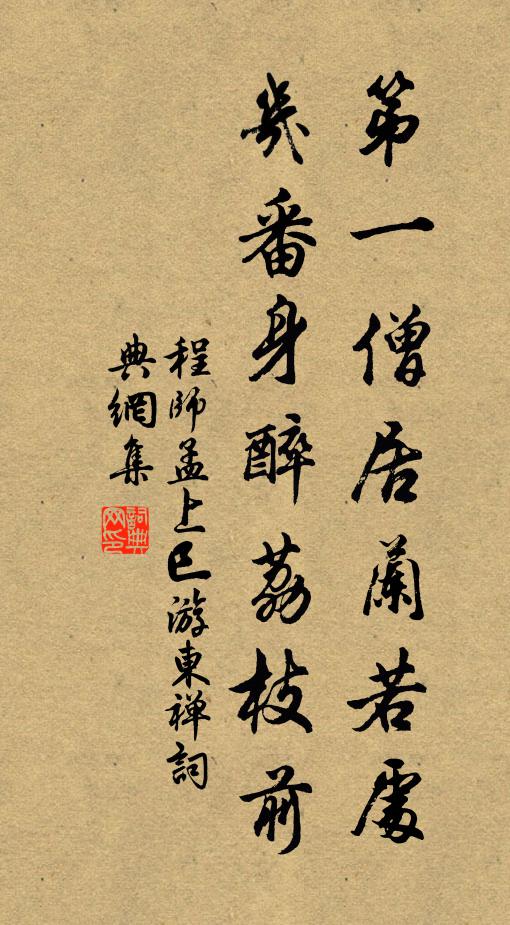 第一僧居蘭若處
幾番身醉荔枝前
程師孟上巳游東禅詞
典網集
詞典
网印